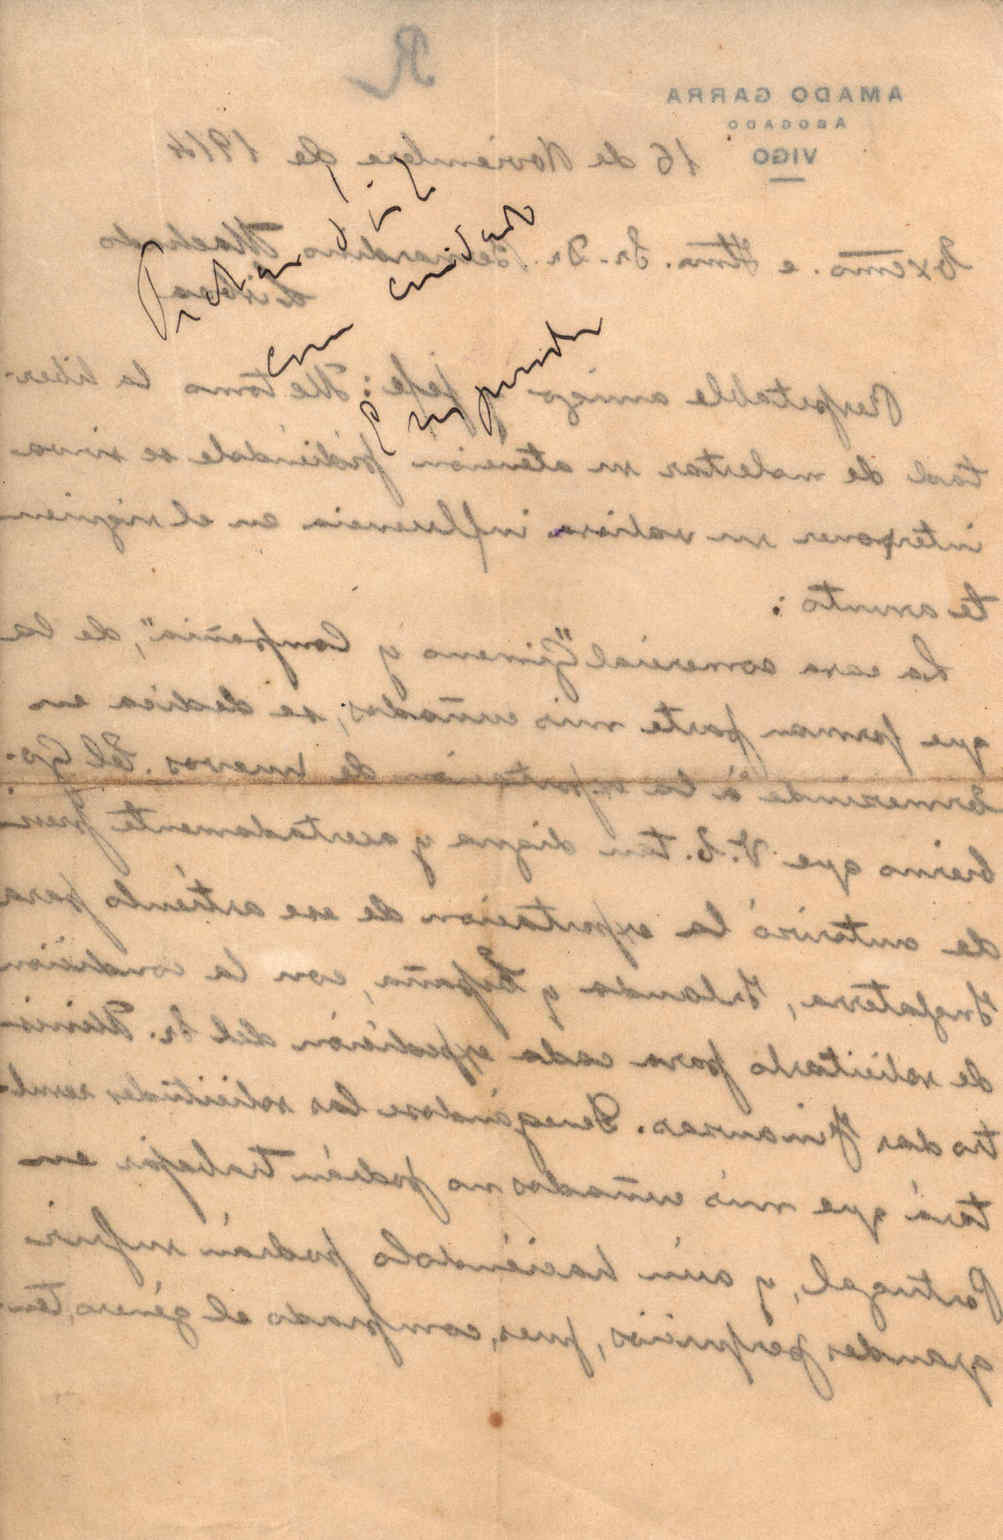 R
AMADO GARRA
ABOGADO
VIGO
16 de Noviembre de 1914
Exmo. e Ilmo. Sr. Dr. Bernardino Machado
Lisboa
com cuidado
Respetable amigo y jefe: Me tomo la liber-
tad de molestar su atención pidiéndole se sirva
interponer su valiosa influencia en el siguien-
te asunto:
La casa comercial "Gimeno y Compañía", de la
que forman parte mis cuñados, se dedica en
á la exportación de huevos. El Go-
bierno que V.E. tan digna y acertadamente presi-
de autorizó la exportación de ese artículo para
Inglaterra, Irlanda y España, con la condición
de solicitarlo para cada expedición del Sr. Minis-
tro das Finanzas. Denegándose las solicitudes resul-
tará que mis cuñados no podrán trabajar en
Portugal, y aún haciéndolo podrán sufrir
grandes perjuicios, pues, comprado el género, ten-